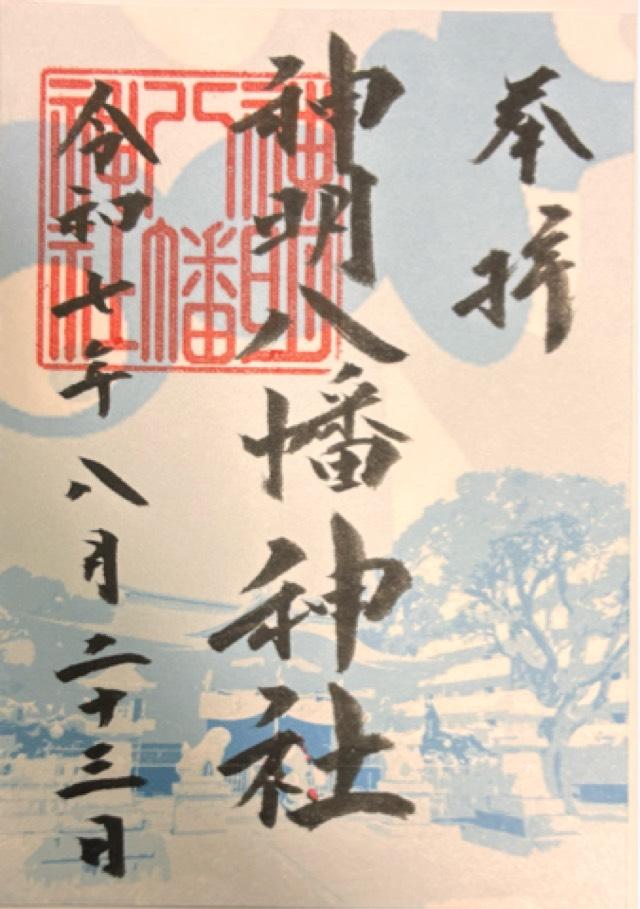 奉拝
神明八幡神社
神明
八幡
神社
令和七年八月二十三日